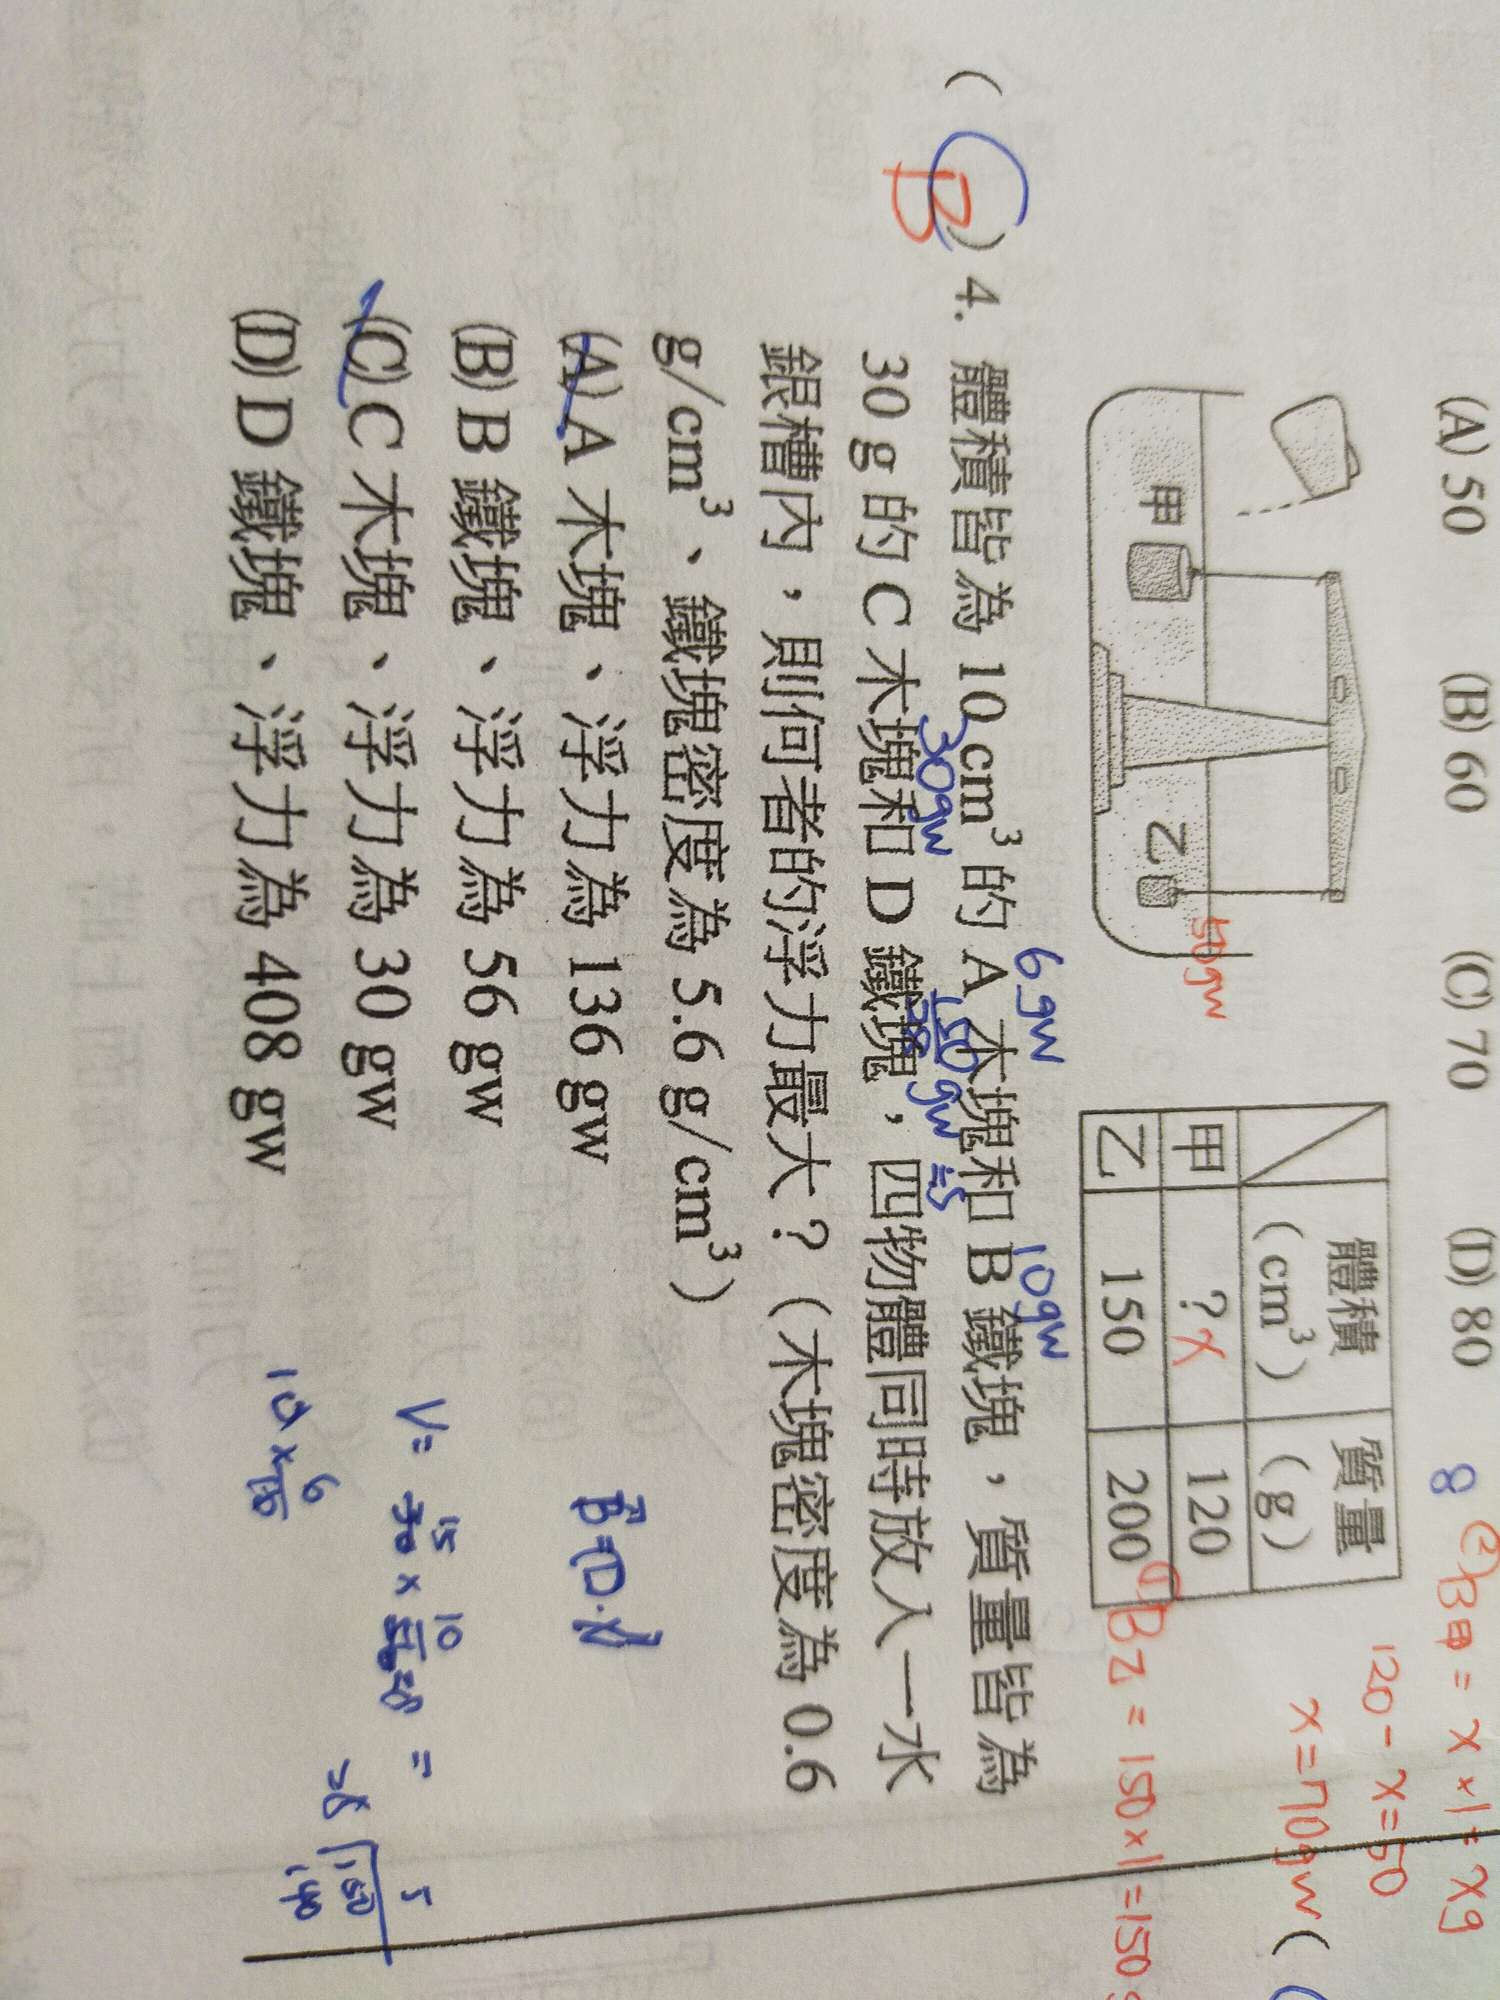 (A) 50 (B) 60 (C) 70 (D) 80
甲
乙
50gw
體積 (cm³) 質量 (g)
甲 ? x 120
乙 150 200
8
② B甲 = x × 1 = xg
120 - x = 50
x = 70gw
① B乙 = 150 × 1 = 150
(
( C ) 4. 體積皆為 10 cm³ 的 A 木塊和 B 鐵塊,質量皆為
B
6gw
10gw
30 g 的 C 木塊和 D 鐵塊,四物體同時放入一水
30gw
150
28 gw ≒5
銀槽內,則何者的浮力最大?(木塊密度為 0.6
g/cm³、鐵塊密度為 5.6 g/cm³)
(A) A 木塊、浮力為 136 gw
(B) B 鐵塊、浮力為 56 gw
(C) C 木塊、浮力為 30 gw
(D) D 鐵塊、浮力為 408 gw
B = D · V
V = 30 15 × 10
=
28 150 5
140
10 × 6